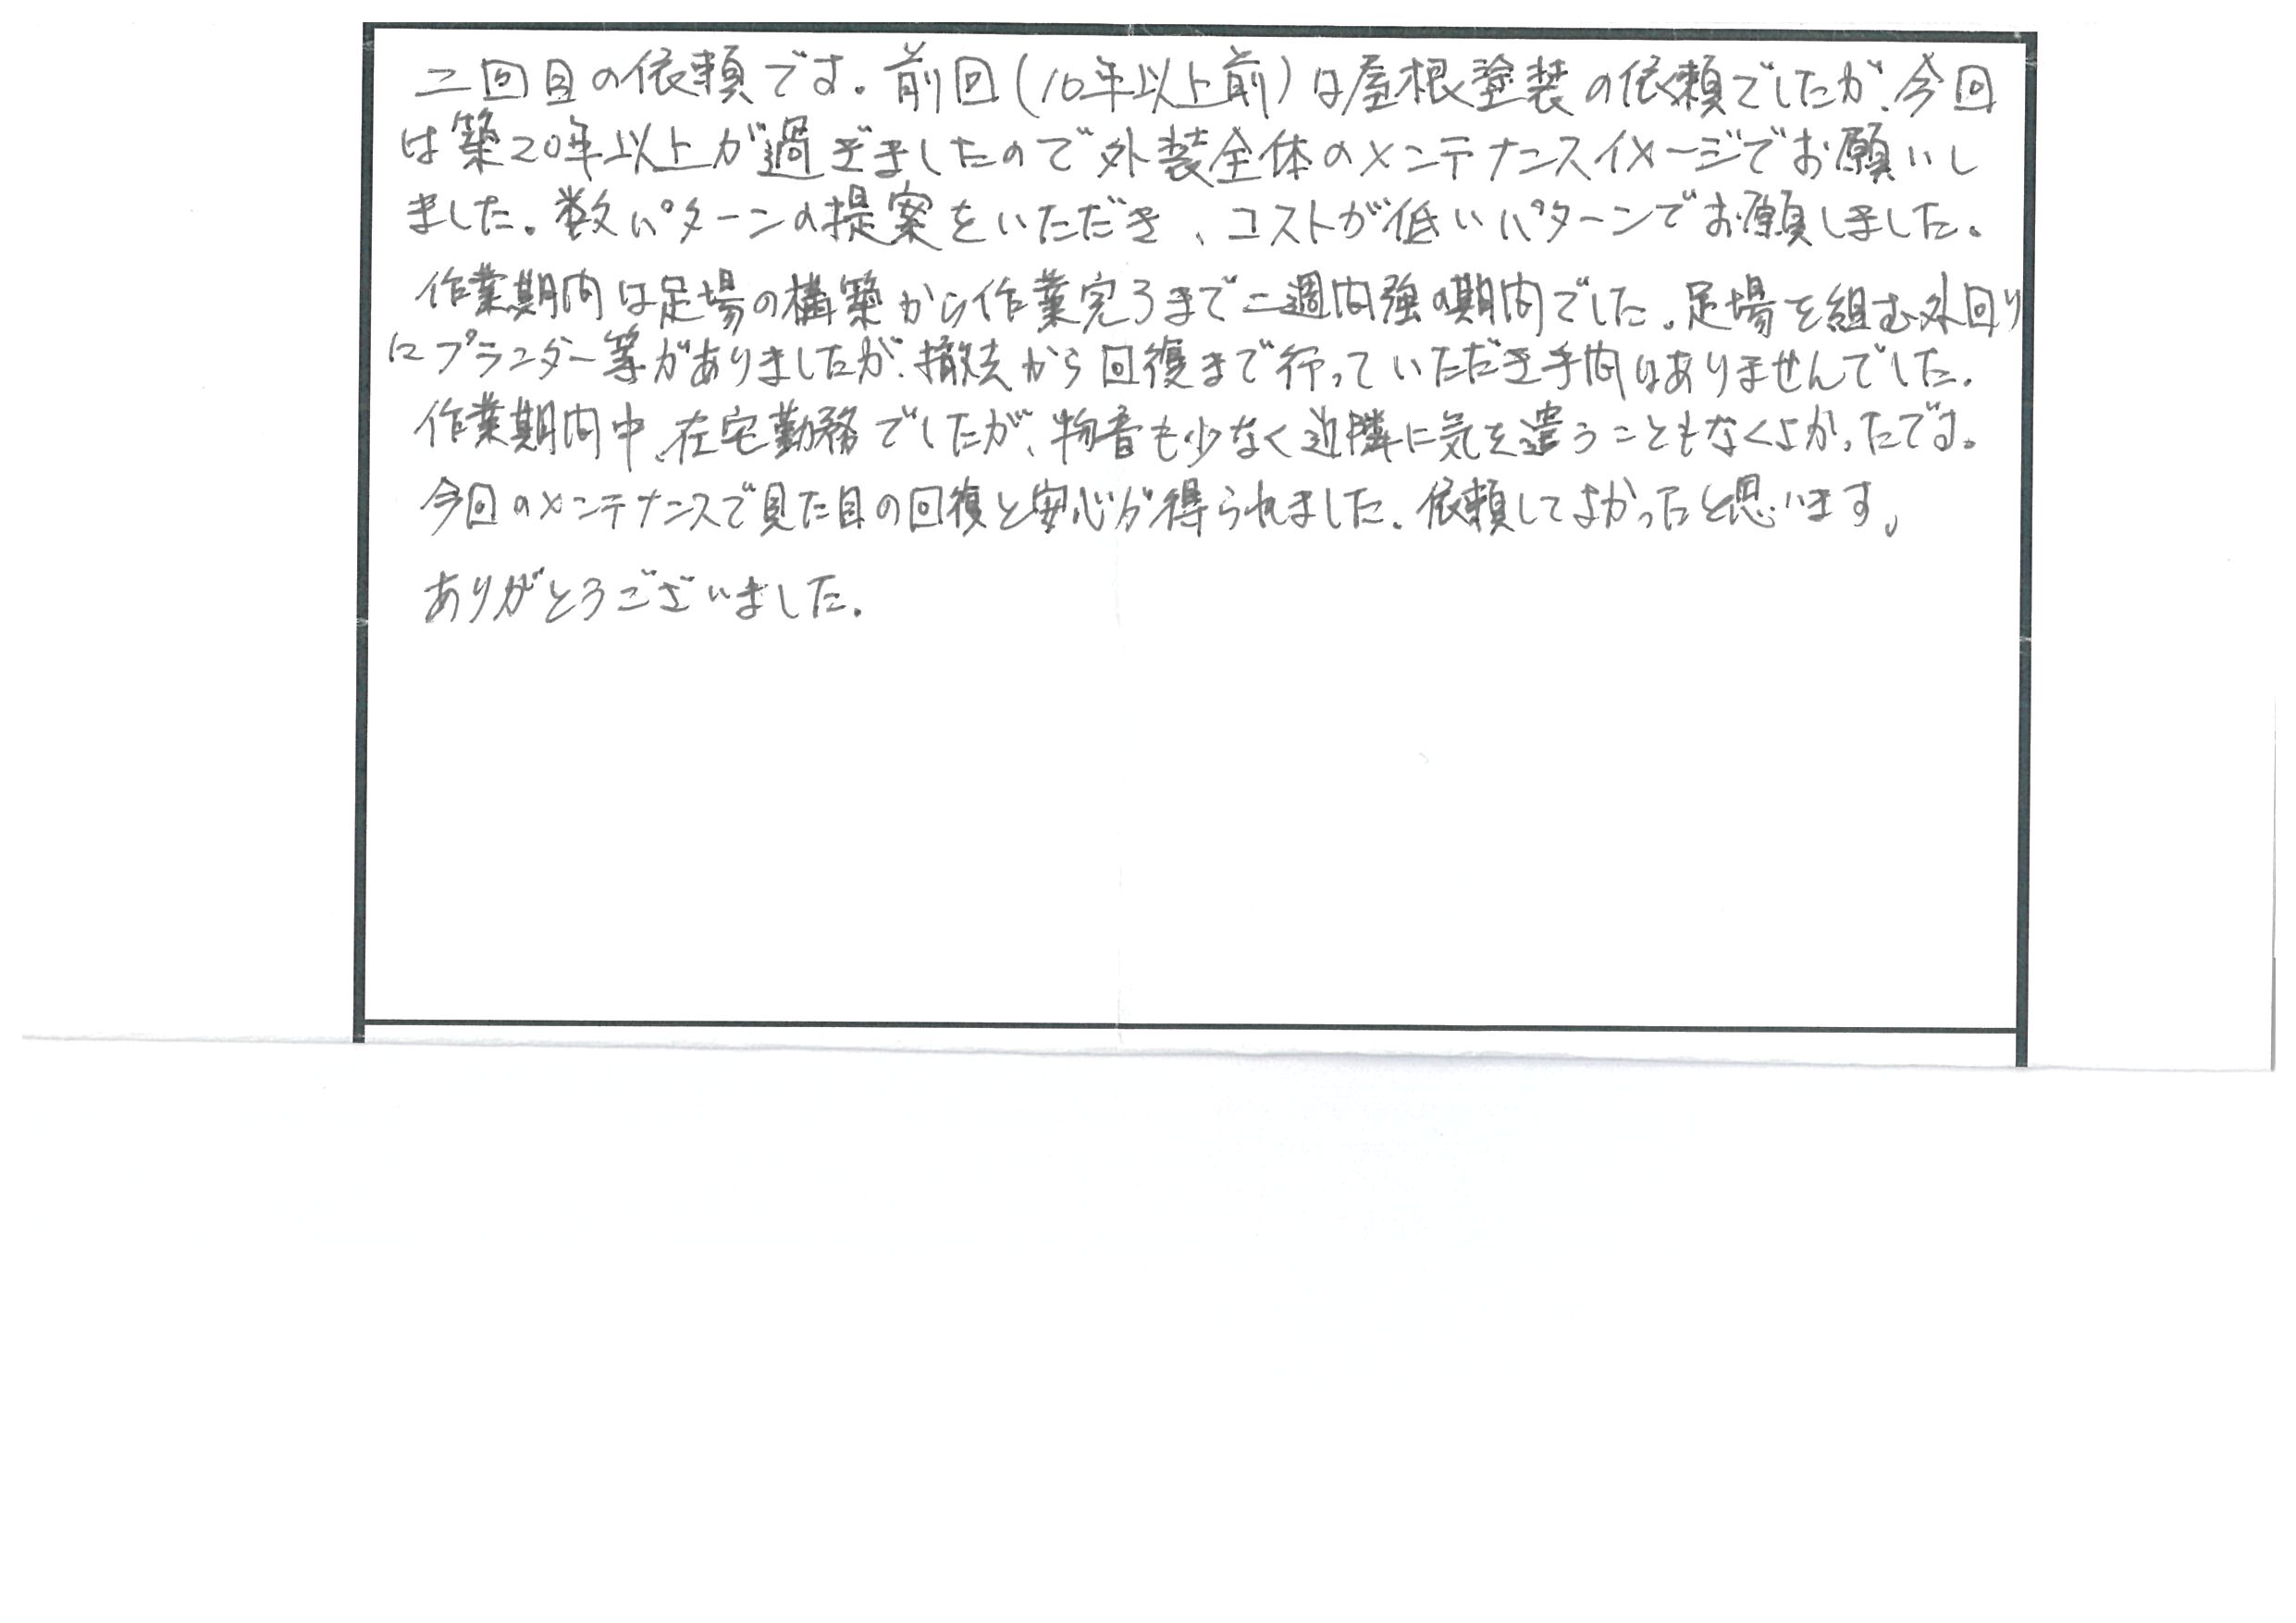 二回目の依頼です。前回(10年以上前)は屋根塗装の依頼でしたが、今回
は築20年以上が過ぎましたので外装全体のメンテナンスイメージでお願いし
ました。数パターンの提案をいただき、コストが低いパターンでお願しました。
作業期間は足場の構築から作業完了まで二週間強の期間でした。足場を組む外回り
にプランター等がありましたが、撤去から回復まで行っていただき手間はありませんでした。
作業期間中、在宅勤務でしたが、物音も少なく近隣に気を遣うこともなくよかったです。
今回のメンテナンスで見た目の回復と安心が得られました。依頼してよかったと思います。
ありがとうございました。